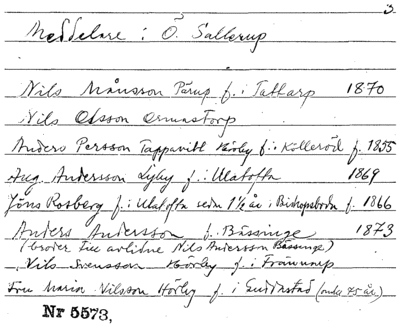 3
Meddelare: Ö. Sallerup
Nils Månsson Pärup f. i Tattarp 1870
Nils Olsson Ormastorp
Anders Persson Tappavitt Hörby f. i Kolleröd f. 1855
Aug. Andersson Lyby f. i Ulatofta 1869
Jöns Rosberg f. i Ulatofta sedn 1½ år i Bishopsboda f. 1866
Anders Andersson f. Bässinge 1873
(broder till avlidne Nils Andersson Bässinge)
Nils Svensson Hörby f. i
Fru Maria Nilsson Hörby f. i (omkr 75 år)
Nr 5573,